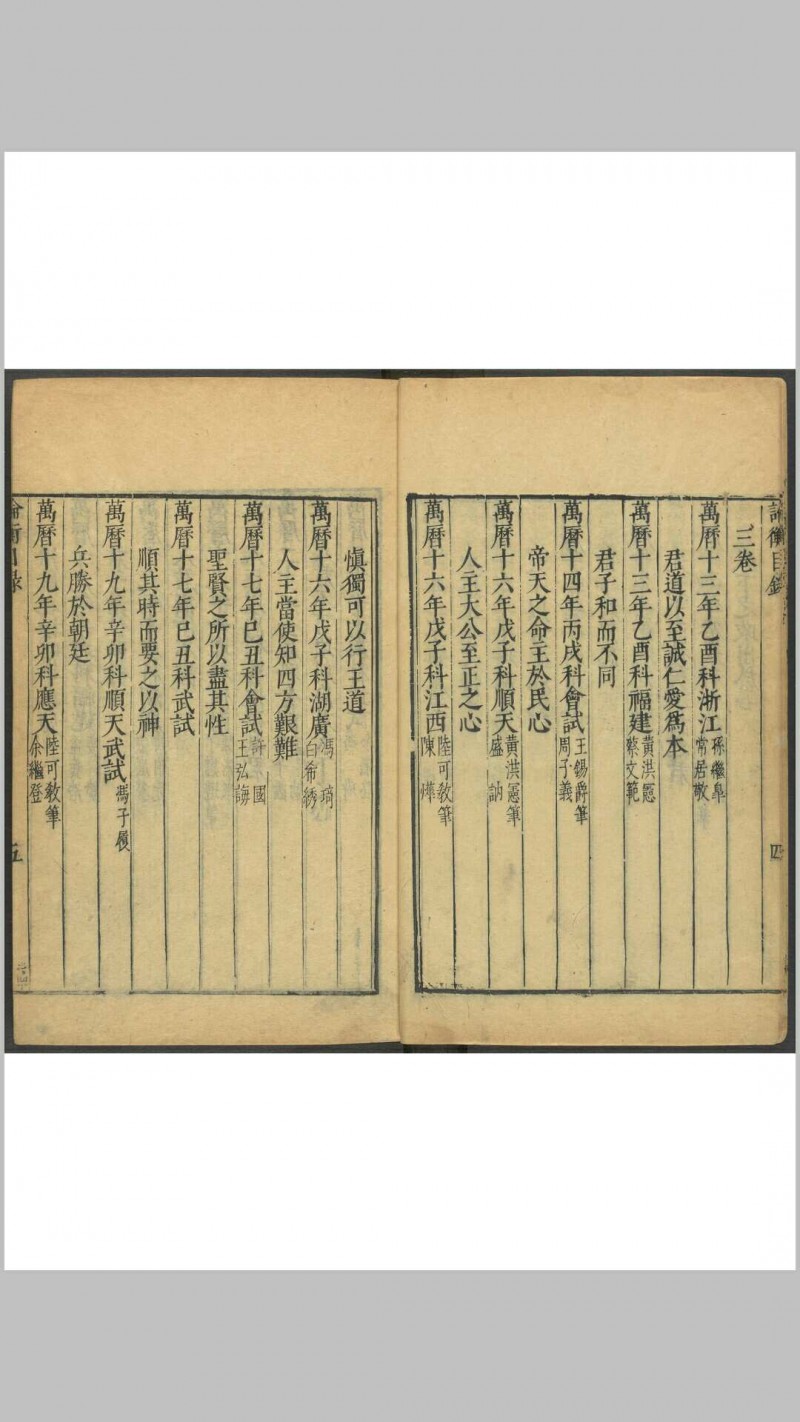 論衡目錄 四
三卷
萬曆十三年乙酉科浙江 孫繼皐 常居敬
君道以至誠仁愛爲本
萬曆十三年乙酉科福建 黃洪憲 蔡文範
君子和而不同
萬曆十四年丙戌科會試 王錫爵筆 周子義
帝天之命主於民心
萬曆十六年戊子科順天 黃洪憲筆 盛訥
人主大公至正之心
萬曆十六年戊子科江西 陸可敎筆 陳燁
愼獨可以行王道
萬曆十六年戊子科湖廣 馮琦 白希綉
人主當使知四方艱難
萬曆十七年己丑科會試 許國 王弘誨
聖賢之所以盡其性
萬曆十七年己丑科武試
順其時而要之以神
萬曆十九年辛卯科順天武試 馮子履
兵勝於朝廷
萬曆十九年辛卯科應天 陸可敎筆 余繼登
論衡目錄 五